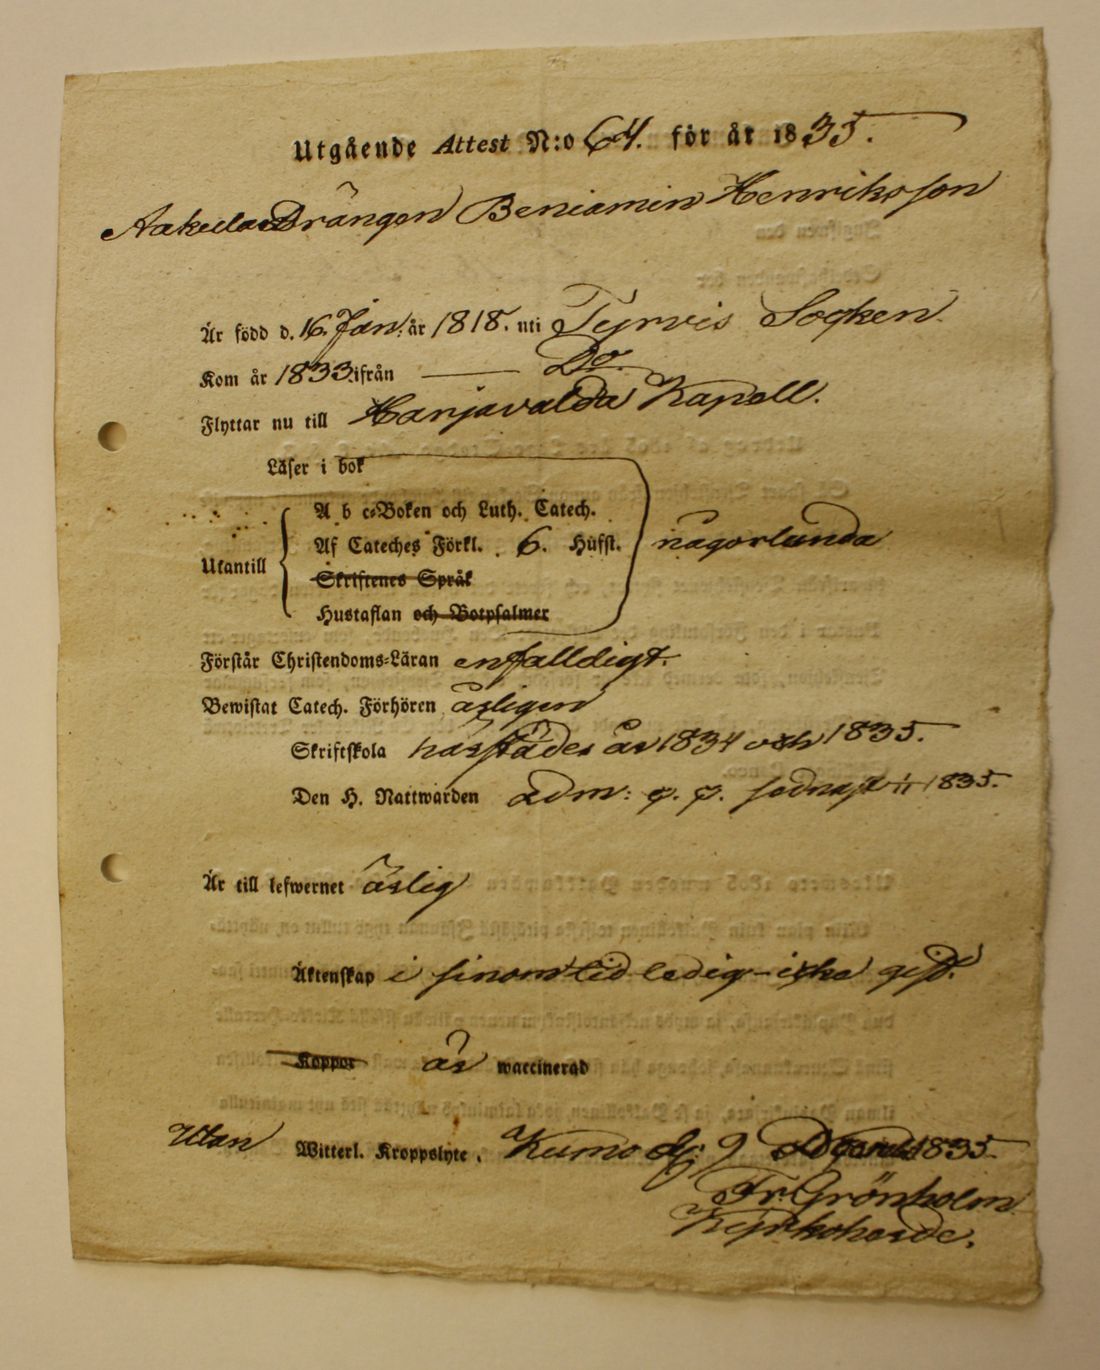 Utgående Attest N:o 64. för år 1835.
Drängen Beniamin Henriksson
Är född d. 16. Jan: år 1818. uti Tyrvis Socken.
Kom år 1833. ifrån — Do.
Flyttar nu till Harjavalda Kapell.
Läser i bok
A b c-Boken och Luth. Catech.
Af Cateches Förkl. 6. Hufst. någorlunda
Utantill
Skriftenes Språk
Hustaflan och Botpsalmer
Förstår Christendoms-Läran enfalldigt.
Bewistat Catech. Förhören årligen
Skriftskola härstädes år 1834 och 1835.
Den H. Nattwarden adm: g. g. sednast 1835.
Är till lefwernet ärlig
Äktenskap i sin om tid ledig - icke gift.
Koppor är waccinerad
Utan Witterl. Kroppslyte. Kumo d. 9 1835
Fr. Grönholm
Kyrkoherde.